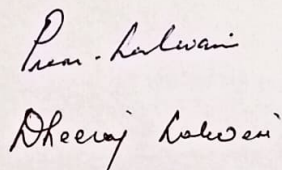 Prem. Lalwani
Dheeraj Lalwani